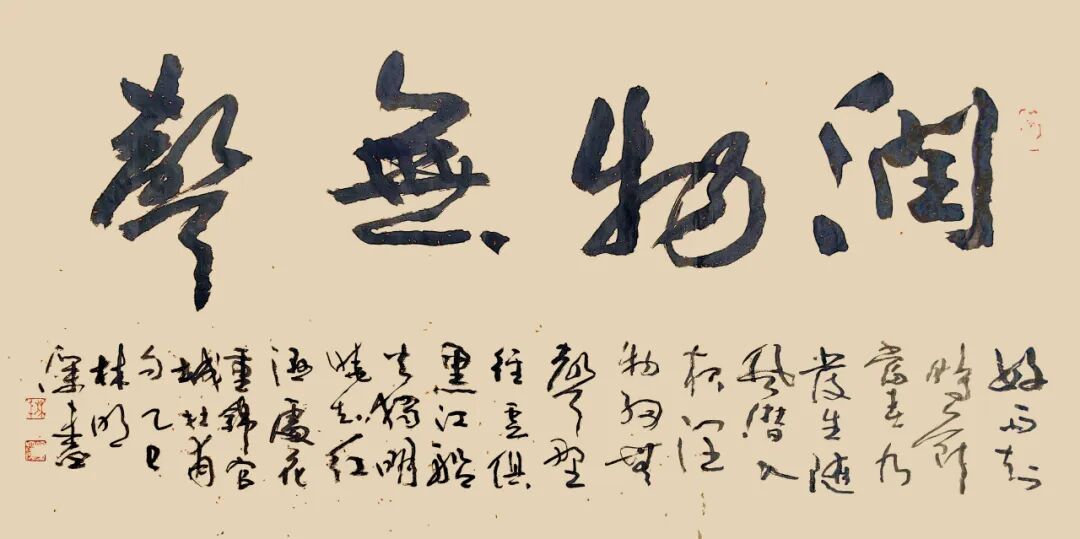 潤物無聲
好雨知
時節
當春乃
發生隨
風潛入
夜潤
物細無
聲野
徑雲俱
黑江船
火獨明
曉看紅
濕處花
重錦官
城杜甫
句乙巳
林明
深書